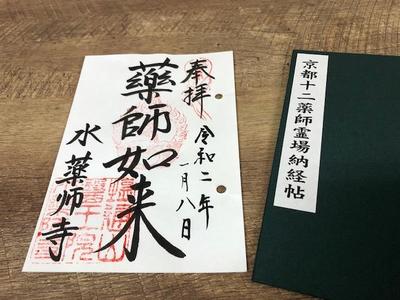 奉拝
令和二年
一月八日
薬師如来
水薬師寺
京都十二薬師霊場納経帖